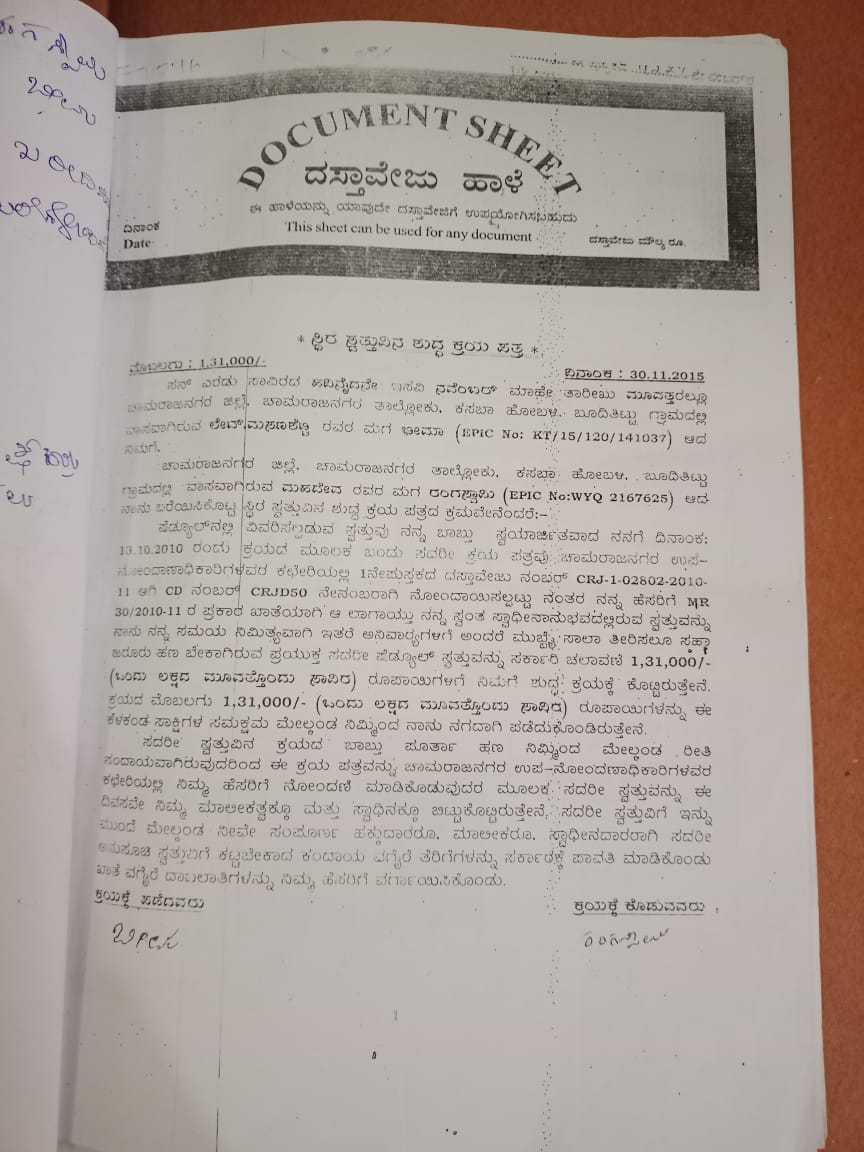 DOCUMENT SHEET
ದಸ್ತಾವೇಜು ಹಾಳೆ
ಈ ಹಾಳೆಯನ್ನು ಯಾವುದೇ ದಸ್ತಾವೇಜಿಗೆ ಉಪಯೋಗಿಸಬಹುದು
ದಿನಾಂಕ
Date
This sheet can be used for any document
ದಸ್ತಾವೇಜು ಮೌಲ್ಯ ರೂ.
* ಸ್ಥಿರ ಸ್ವತ್ತುವಿನ ಶುದ್ಧ ಕ್ರಯ ಪತ್ರ *
ಮೊಬಲಗು : 1,31,000/- ದಿನಾಂಕ : 30.11.2015
ಸನ್ ಎರಡು ಸಾವಿರದ ಹದಿನೈದನೇ ಇಸವಿ ನವೆಂಬರ್ ಮಾಹೇ ತಾರೀಖು ಮೂವತ್ತರಲ್ಲೂ
ಚಾಮರಾಜನಗರ ಜಿಲ್ಲೆ, ಚಾಮರಾಜನಗರ ತಾಲ್ಲೋಕು, ಕಸಬಾ ಹೋಬಳಿ, ಬೂದಿತಿಟ್ಟು ಗ್ರಾಮದಲ್ಲಿ
ವಾಸವಾಗಿರುವ ಲೇಟ್ ರವರ ಮಗ ಭೀಮಾ (EPIC No: KT/15/120/141037) ಆದ
ನಿಮಗೆ,
ಚಾಮರಾಜನಗರ ಜಿಲ್ಲೆ, ಚಾಮರಾಜನಗರ ತಾಲ್ಲೋಕು, ಕಸಬಾ ಹೋಬಳಿ, ಬೂದಿತಿಟ್ಟು
ಗ್ರಾಮದಲ್ಲಿ ವಾಸವಾಗಿರುವ ಮಹದೇವ ರವರ ಮಗ ರಂಗಸ್ವಾಮಿ (EPIC No:WYQ 2167625) ಆದ
ನಾನು ಬರೆಯಿಸಿಕೊಟ್ಟ ಸ್ಥಿರ ಸ್ವತ್ತುವಿನ ಶುದ್ಧ ಕ್ರಯ ಪತ್ರದ ಕ್ರಮವೇನೆಂದರೆ:–
ಷೆಡ್ಯೂಲ್‌ನಲ್ಲಿ ವಿವರಿಸಲ್ಪಡುವ ಸ್ವತ್ತುವು ನನ್ನ ಬಾಬ್ತು ಸ್ವಯಾರ್ಜಿತವಾದ ನನಗೆ ದಿನಾಂಕ:
13.10.2010 ರಂದು ಕ್ರಯದ ಮೂಲಕ ಬಂದು ಸದರೀ ಕ್ರಯ ಪತ್ರವು ಚಾಮರಾಜನಗರ ಉಪ–
ನೋಂದಾಣಾಧಿಕಾರಿಗಳವರ ಕಛೇರಿಯಲ್ಲಿ 1ನೇಪುಸ್ತಕದ ದಸ್ತಾವೇಜು ನಂಬರ್ CRJ-1-02802-2010-
11 ಆಗಿ CD ನಂಬರ್ CRJD50 ನೇನಂಬರಾಗಿ ನೋಂದಾಯಿಸಲ್ಪಟ್ಟು ನಂತರ ನನ್ನ ಹೆಸರಿಗೆ MR
30/2010-11 ರ ಪ್ರಕಾರ ಖಾತೆಯಾಗಿ ಆ ಲಾಗಾಯ್ತು ನನ್ನ ಸ್ವಂತ ಸ್ವಾಧೀನಾನುಭವದಲ್ಲಿರುವ ಸ್ವತ್ತುವನ್ನು
ನಾನು ನನ್ನ ಸಮಯ ನಿಮಿತ್ಯವಾಗಿ ಇತರೆ ಅನಿವಾರ್ಯಗಳಿಗೆ ಅಂದರೆ ಸಾಲಾ ತೀರಿಸಲೂ ಸಹಾ
ಜರೂರು ಹಣ ಬೇಕಾಗಿರುವ ಪ್ರಯುಕ್ತ ಸದರೀ ಷೆಡ್ಯೂಲ್ ಸ್ವತ್ತುವನ್ನು ಸರ್ಕಾರಿ ಚಲಾವಣಿ 1,31,000/-
(ಒಂದು ಲಕ್ಷದ ಮೂವತ್ತೊಂದು ಸಾವಿರ) ರೂಪಾಯಿಗಳಿಗೆ ನಿಮಗೆ ಶುದ್ಧ ಕ್ರಯಕ್ಕೆ ಕೊಟ್ಟಿರುತ್ತೇನೆ.
ಕ್ರಯದ ಮೊಬಲಗು 1,31,000/- (ಒಂದು ಲಕ್ಷದ ಮೂವತ್ತೊಂದು ಸಾವಿರ) ರೂಪಾಯಿಗಳನ್ನು ಈ
ಕೆಳಕಂಡ ಸಾಕ್ಷಿಗಳ ಸಮಕ್ಷಮ ಮೇಲ್ಕಂಡ ನಿಮ್ಮಿಂದ ನಾನು ನಗದಾಗಿ ಪಡೆದುಕೊಂಡಿರುತ್ತೇನೆ.
ಸದರೀ ಸ್ವತ್ತುವಿನ ಕ್ರಯದ ಬಾಬ್ತು ಪೂರ್ತಾ ಹಣ ನಿಮ್ಮಿಂದ ಮೇಲ್ಕಂಡ ರೀತಿ
ಸಂದಾಯವಾಗಿರುವುದರಿಂದ ಈ ಕ್ರಯ ಪತ್ರವನ್ನು ಚಾಮರಾಜನಗರ ಉಪ–ನೋಂದಣಾಧಿಕಾರಿಗಳವರ
ಕಛೇರಿಯಲ್ಲಿ ನಿಮ್ಮ ಹೆಸರಿಗೆ ನೋಂದಣಿ ಮಾಡಿಕೊಡುವುದರ ಮೂಲಕ ಸದರೀ ಸ್ವತ್ತುವನ್ನು ಈ
ದಿವಸವೇ ನಿಮ್ಮ ಮಾಲೀಕತ್ವಕ್ಕೂ ಮತ್ತು ಸ್ವಾಧಿನಕ್ಕೂ ಬಿಟ್ಟುಕೊಟ್ಟಿರುತ್ತೇನೆ, ಸದರೀ ಸ್ವತ್ತುವಿಗೆ ಇನ್ನು
ಮುಂದೆ ಮೇಲ್ಕಂಡ ನೀವೇ ಸಂಪೂರ್ಣ ಹಕ್ಕುದಾರರೂ, ಮಾಲೀಕರೂ, ಸ್ವಾಧೀನದಾರರಾಗಿ ಸದರೀ
ಅನುಸೂಚಿ ಸ್ವತ್ತುವಿಗೆ ಕಟ್ಟಬೇಕಾದ ಕಂದಾಯ ವಗೈರೆ ತೆರಿಗೆಗಳನ್ನು ಸರ್ಕಾರಕ್ಕೆ ಪಾವತಿ ಮಾಡಿಕೊಂಡು
ಖಾತೆ ವಗೈರೆ ದಾಖಲಾತಿಗಳನ್ನು ನಿಮ್ಮ ಹೆಸರಿಗೆ ವರ್ಗಾಯಿಸಿಕೊಂಡು.
ಕ್ರಯಕ್ಕೆ ಪಡೆದವರು ಕ್ರಯಕ್ಕೆ ಕೊಡುವವರು
ಭೀಮ
1